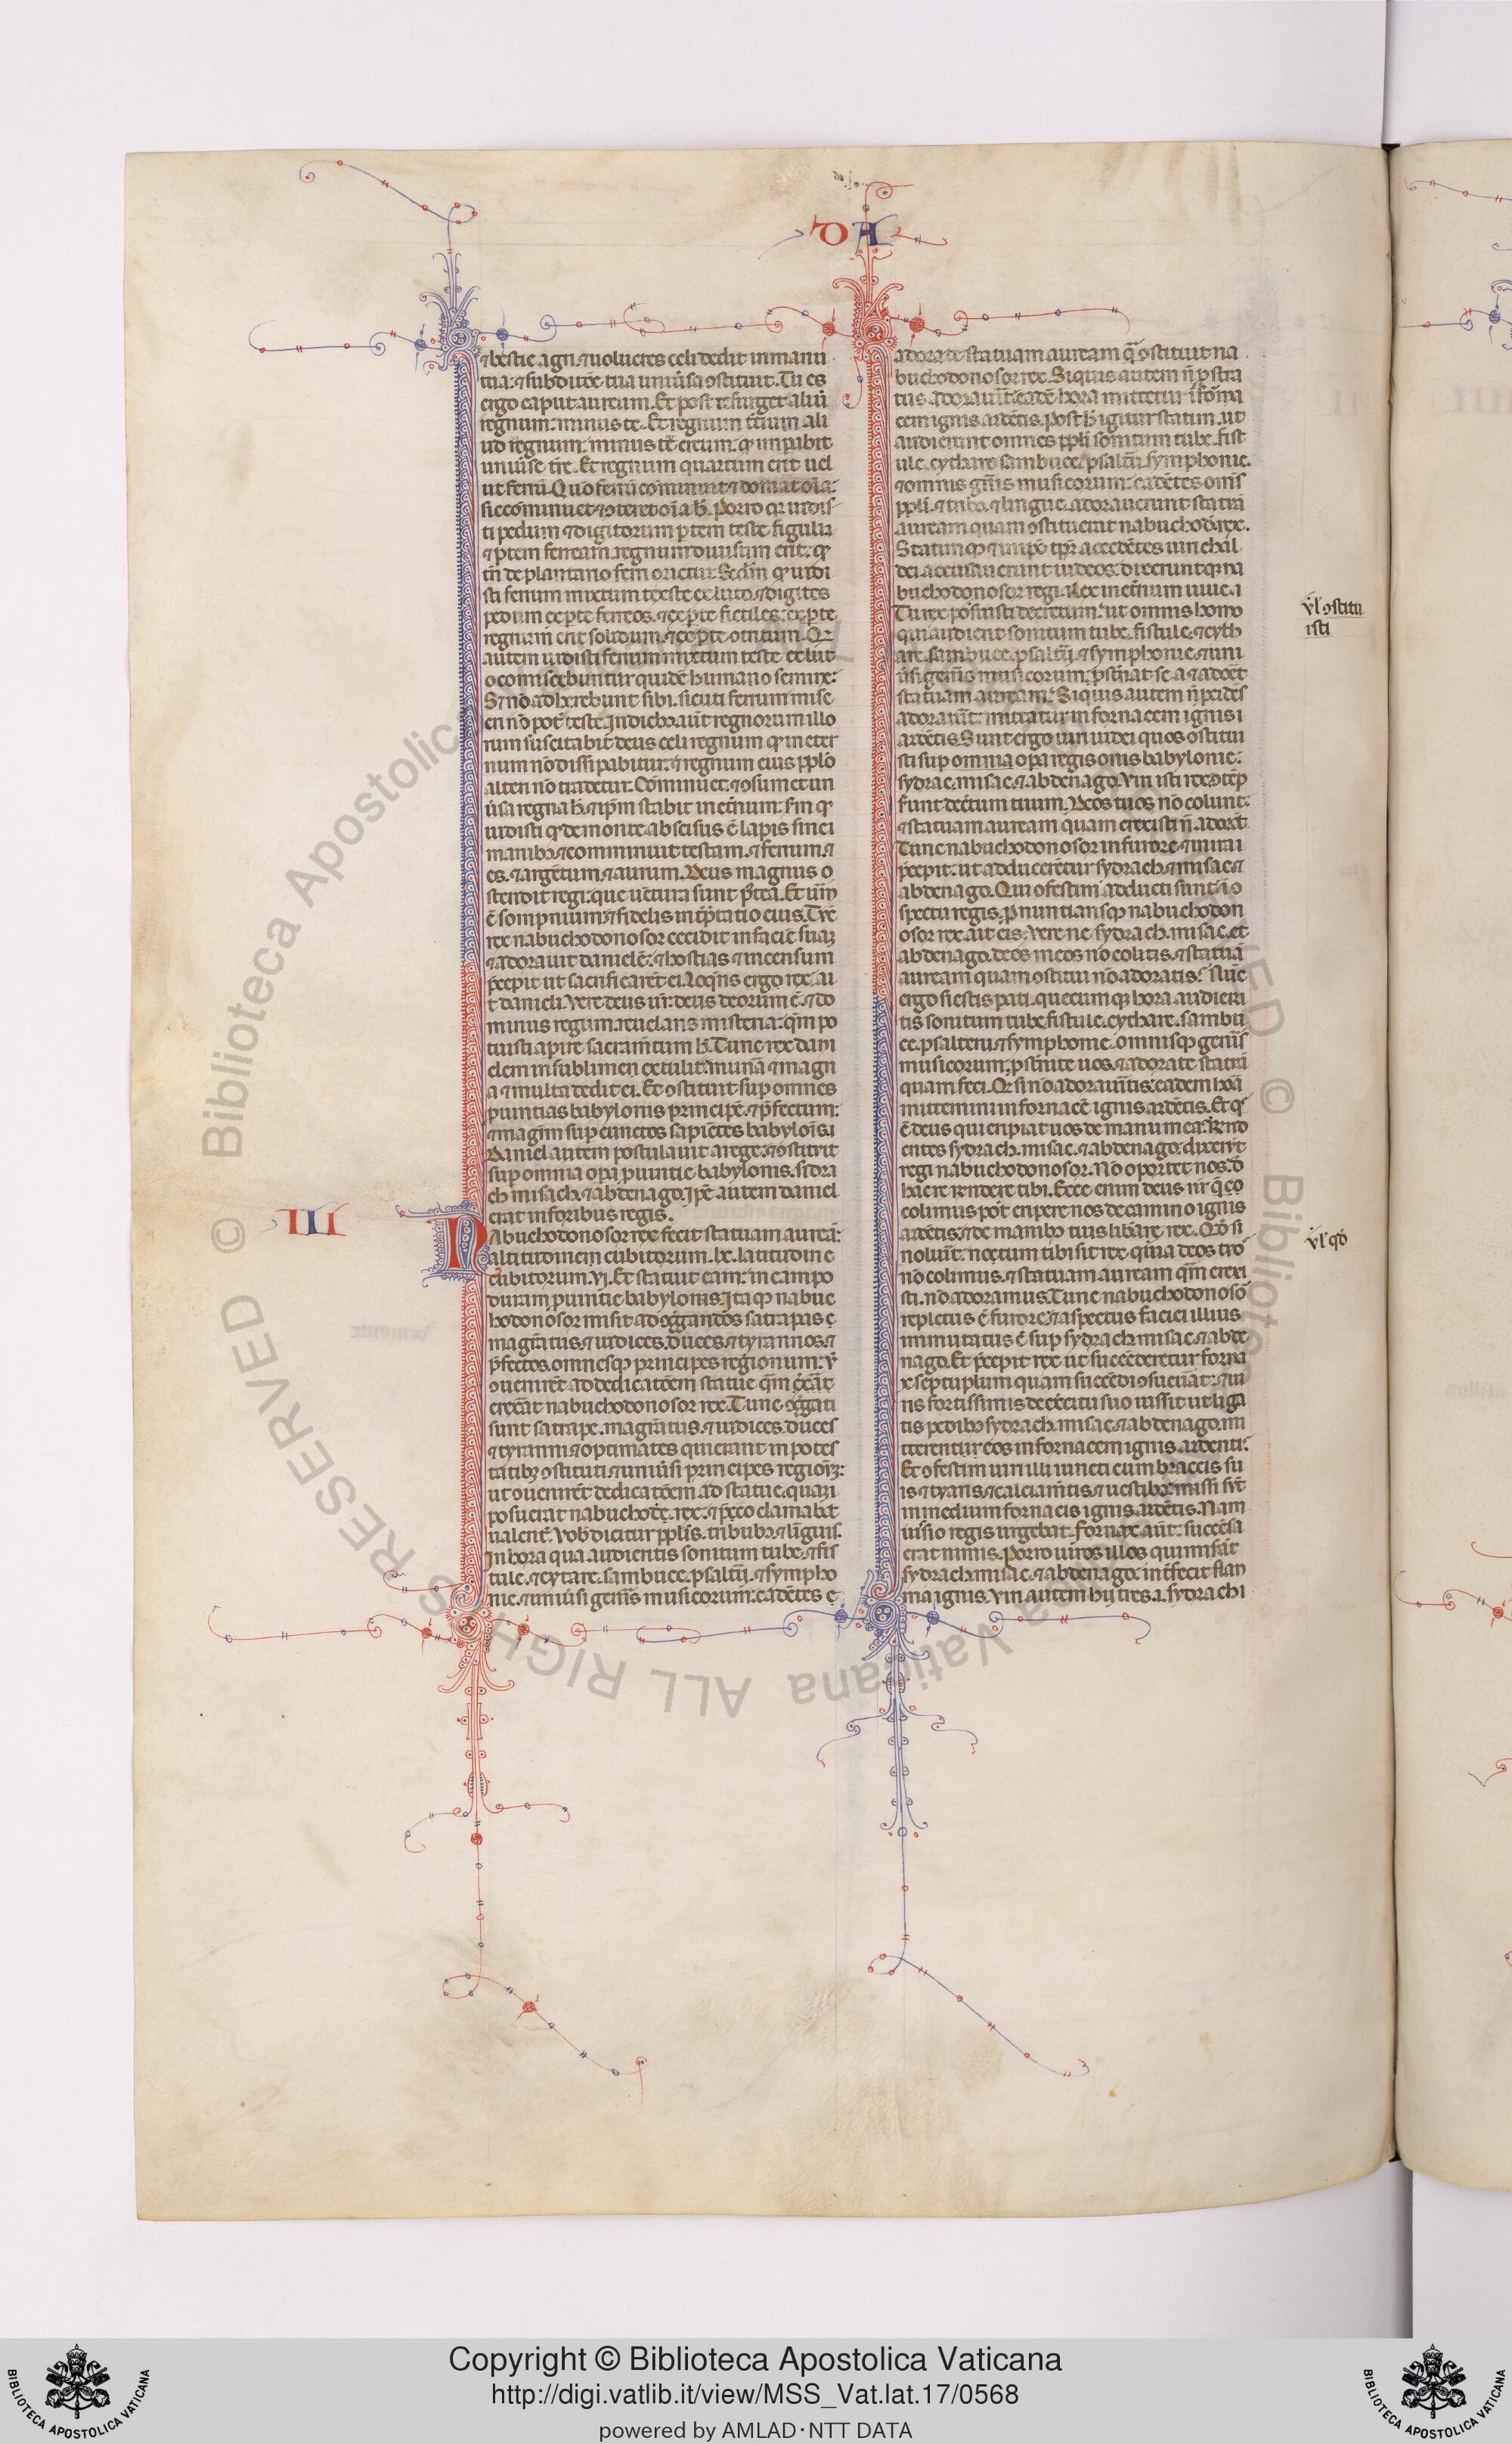 DA
⁊ bestie agri. ⁊ uolucres celi dedit in manu
tua: ⁊ sub ditōe tua uniūsa ꝯstituit. Tu es
ergo caput aureum. Et post te surget aliud
regnum: minus te. Et regnum t̄cium ali
ud regnum.
uniūse t̄re. Et regnum quartum erit uel
ut ferrū. Quō ferrū cōminuit ⁊ domat oīa:
sic cōminuet ⁊ ꝯteret oīa h̄. Porro qr uidis
ti pedum ⁊ digitorum ꝑtem teste figuli
⁊ ꝑtem ferream: regnum diuisum erit: qđ
tn̄ de plantario ferri orietur. Scđm qđ uidi
sti ferrum mixtum teste ex luto. ⁊ digitos
pedum ex ꝑte ferreos. ⁊ ex ꝑte fictiles: ex ꝑte
regnum erit solidum. ⁊ ex ꝑte ꝯtritum. Qr
autem uidisti ferrum mixtum teste ex lut
o cōmiscebuntur quidē humano semine:
S; nō adherebunt sibi. sicuti ferrum misc
eri nō pot̄ teste. In dieb; aūt regnorum illo
rum suscitabit deus celi regnum qđ in eter
num nō dissipabitur: ⁊ regnum eius pplō
alteri nō tradetur. Cōminuet: ⁊ ꝯsumet un
iūsa regna h̄. ⁊ ip̄m stabit in et̄num: s̄m qđ
uidisti qđ de monte abscisus ē lapis sine
manib; ⁊ comminuit testam. ⁊ ferrum. ⁊
es. ⁊ argētum. ⁊ aurum. Deus magnus o
stendit regi. que uētura sunt p̄tea. Et uer̄
ē sompnium: ⁊ fidelis int̄p̄tatio eius. Tūc
rex nabuchodonosor cecidit in faciē suā
⁊ adorauit danielē: ⁊ hostias ⁊ incensum
p̄cepit ut sacrificarēt ei. Loq̄ns ergo rex ai
t danieli. Vere deus ur̄: deus deorum ē. ⁊ do
minus regum. reuelans misteria: qm̄ po
tuisti apire sacram̄tum h̄. Tunc rex dani
elem in sublime extulit: ⁊ munā ⁊ magn
a ⁊ multa dedit ei. Et ꝯstituit sup omnes
puintias babylonis principē: ⁊ p̄fectum:
⁊ magr̄m sup cunctos sapiētes babylois.
Daniel autem postulauit a rege: ⁊ ꝯstituit
sup omnia opa puintie babylonis. sidra
ch misach. ⁊ abdenago. Ip̄e autem daniel
erat in foribus regis.
III
Nabuchodonosor rex fecit statuam aureā:
altitudinem cubitorum. lx. latitudine
cubitorum. vi. Et statuit eam: in campo
duram puintie babylonis. Itaq; nabuc
hodonosor misit ad ꝯg̃andos satrapas ⁊
magr̄atus. ⁊ iudices. duces. ⁊ tyrannos. ⁊
p̄fectos. omnesq; principes regionum: ut
ꝯuenirēt ad dedicatōem statue qm̄
erex̄at nabuchodonosor rex. Tunc ꝯg̃ati
sunt satrape. magr̄atus. ⁊ iudices. duces
⁊ tyranni. ⁊ optimates qui erant in potes
tatib; ꝯstituti. ⁊ uniūsi principes regionū:
ut ꝯuenirēt dedicatōem ad statue. quā
posuerat nabuchodo. rex. ⁊ p̄co clamabat
ualent̄. Vob̄ dicitur pplīs. tribub; ⁊ linguis.
In hora qua audieritis sonitum tube. ⁊ fis
tule. ⁊ cytare. sambuce. psaltii. ⁊ sympho
nie. ⁊ uniūsi gen̄is musicorum: cadētes ⁊
adorate statuam auream qā ꝯstituit na
buchodonosor rex. Si quis autem n̄ pstra
tus adorauit̄: eadē hora mittetur ī forna
cem ignis ardētis. Post h̄ igitur statim. ut
audierunt omnes ppli sonitum tube. fist
ule. cythare sambuce. psaltii. symphonie.
⁊ omnis gn̄is musicorum: cadētes om̄s
ppli. ⁊ tribꝰ. ⁊ lingue. adorauerunt statuā
auream quam ꝯstituerat nabuchod. rex.
Statimq; ⁊ in ip̄o tpr̄ accedētes uiri chal
dei accusauerunt iudeos. dixeruntq; na
buchodonosor regi. Rex in et̄num uiue.
Tu rex posuisti decretum: ut omnis homo
qui audierit sonitum tube. fistule. ⁊ cyth
are. sambuce. psaltii. ⁊ symphonie. ⁊ uni
ūsi gen̄is musicorum: pst̄nat se. ⁊ adoret
statuam auream: Si quis autem n̄ pcidēs
adorau̅it: mittatur in fornacem ignis
ardētis. Sunt ergo uiri iudei quos ꝯstitui
sti sup omnia opa regis babylonie:
sydrac. misac. ⁊ abdenago. Viri isti rex ꝯtēp
serunt decretum tuum. Deos tuos nō colunt:
⁊ statuam auream quam erexisti n̄ adorāt
Tunc nabuchodonosor in furore ⁊ in ira
p̄cepit: ut adducerētur sydrach. ⁊ misac ⁊
abdenago. Qui ꝯfestim adducti sunt in ꝯ
spectu regis. Pnuntiansq; nabuchodon
osor rex. ait eis. Vere ne sydrach. misac. et
abdenago. deos meos nō colitis. ⁊ statuā
auream quam ꝯstitui nō adoratis? Nūc
ergo si estis pati. quecumq; hora audieri
tis sonitum tube fistule. cythare. sambu
ce. psalterii. ⁊ symphonie. omnisq; gen̄is
musicorum: pst̄nite uos. ⁊ adorate statuā
quam feci. Qr si nō adorau̅itis: eadem horā
mittemini in fornacē ignis ardētis. Et qs
ē deus qui eripiat uos de manu mea: Rn̄d
entes sydrach. misac. ⁊ abdenago. dixerūt
regi nabuchodonosor. Nō oportet nos: d
hac re rēndere tibi. Ecce enim deus nr̄ qē co
olimus. pot̄ eripere nos de camino ignis
ardētis: ⁊ de manib; tuis lib̄are rex. Qđ si
noluit̄: notum tibi sit rex. quia deos tuos
nō colimus. ⁊ statuam auream qm̄ erexi
sti. nō adoramus. Tunc nabuchodonosor
repletus ē furore. ⁊ aspectus faciei illius
immutatus ē sup sydrach misac. ⁊ abde
nago. Et p̄cepit rex ut succenderetur forna
x septuplum quam succēdi ꝯsueuāt: ⁊ ui
ris fortissimis de ex̄citu suo iussit ut liga
tis pedib; sydrach. misac. ⁊ abdenago. mi
tterentur eos in fornacem ignis ardenti:
Et ꝯfestim uiri illi iuncti cum braccis su
is ⁊ tyaris. ⁊ calciam̄tis. ⁊ uestib; missi sūt
in medium fornacis ignis ardētis. Nam
iussio regis urgebat. Fornax aūt: succēsa
erat nimis. Porro uiros illos qui mis̄at
sydrach misac. ⁊ abdenago: int̄fecit flam
ma ignis. Viri autem hij tres. i. sydrach
ul ꝯstitu
isti
ul qđ
Biblioteca Apostolica Vaticana ALL RIGHTS RESERVED ©
Copyright © Biblioteca Apostolica Vaticana
http://digi.vatlib.it/view/MSS_Vat.lat.17/0568
powered by AMLAD·NTT DATA
BIBLIOTECA APOSTOLICA VATICANA
BIBLIOTECA APOSTOLICA VATICANA